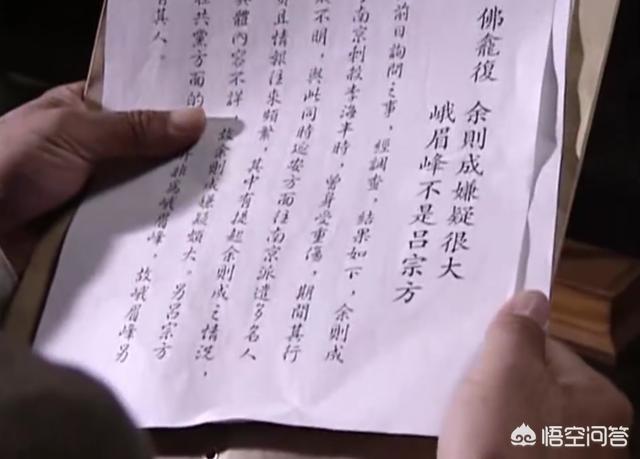 佛龕復
余則成嫌疑很大
峨眉峰不是呂宗方
前日詢問之事，經調查，結果如下，余則成
南京刺殺李海丰時，曾身受重傷，期間其行
不明，與此同時延安方面往南京派遣多名人
且情報往來頻繁，其中有提起余則成之情況，
具體內容不詳，故余則成嫌疑頗大。另呂宗方
共黨方面的
非爲峨眉峰，故峨眉峰另
有其人。
悟空问答